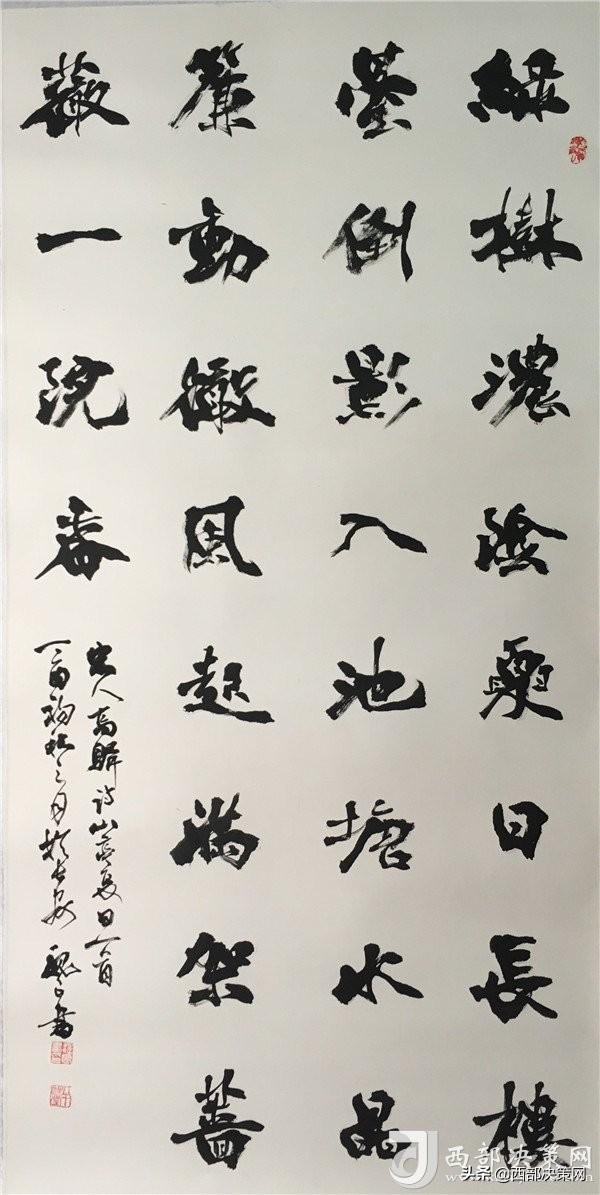 綠樹濃陰夏日長樓
臺倒影入池塘水晶
簾動微風起滿架薔
薇一院香
人高駢诗山亭夏日一首
丁酉初秋之月於長安 書
西部决策网
头条@西部决策网